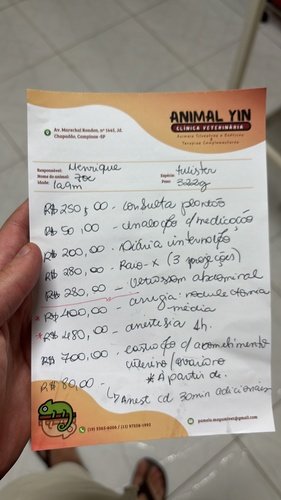 ANIMAL YIN
CLÍNICA VETERINÁRIA
Animais Silvestres e Exóticos
Terapias Complementares
Av. Marechal Rondon, nº 1445, Jd.
Chapadão, Campinas -SP
Responsável: Henrique
Espécie:
Nome do animal: Zoe
Peso: 322g
Idade:
R$ 250,00 - consulta plantão
R$ 50,00 - inalação c/ medicação
R$ 200,00 - Diária internação
R$ 280,00 - Raio-x (3 projeções)
R$ 280,00 - Ultrassom abdominal
* R$ 400,00 - cirurgia: nodulectomia
média
* R$ 480,00 - anestesia 1h.
R$ 700,00 - castração c/ acometimento
uterino/ovariano
* A partir de.
R$ 80,00 -
Anest cd 30min adicionais
pamela.mayumivet@gmail.com